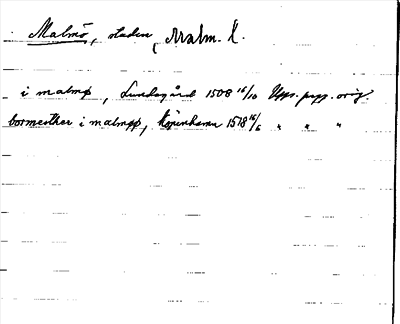 Malmö, staden, Malm. L.
i malmø, Lundagård 1508 16/10 Upps. papp. orig.
bormesther i malmøø, Köpenhamn 1518 16/6 " " "